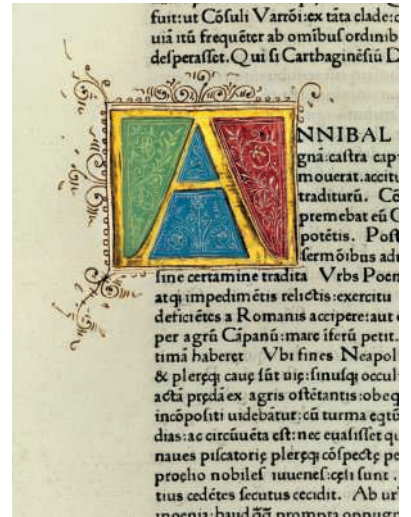 fuit:ut Cõsuli Varrõi:ex tãta clade:c
uiã itũ frequẽter ab omĩbuſ ordinib
deſperaſſet. Qui ſi Carthaginẽſiũ D
A NNIBAL
gnã:caſtra cap
mouerat.accitu
traditurũ. Cõ
premebat eũ C
potẽtis. Poſt
ſermõibus adu
ſine certamine tradita Vrbs Poen
atqꝫ impedimẽtis relictis:exercitu
deficiẽtes a Romanis accipere:aut d
per agrũ Cãpanũ:mare ĩferũ petit.
timã haberet Vbi fines Neapol
& pleręqꝫ cauę ſũt uię:ſinuſqꝫ occul
actã prędã ex agris oſtẽtantis:obeq
incõpoſiti uidebãtur:cũ turma eqtũ
dias:ac circũuẽta eſt:nec euaſiſſet qu
naues piſcatorię pleręqꝫ cõſpectę pe
proelio nobileſ iuueneſ:cęſi ſunt.
tius cedẽtes ſecutus cecidit. Ab ur
moenia:haud prompta oppugn